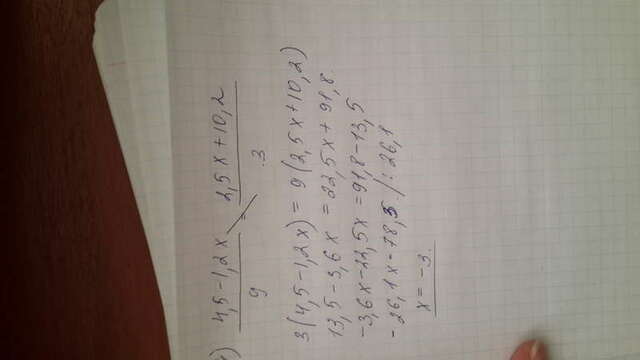 4,5-1,2x / 9 = 2,5x+10,2 / 3
3(4,5-1,2x) = 9(2,5x+10,2)
13,5-3,6x = 22,5x+91,8
-3,6x-22,5x=91,8-13,5
-26,1x-78,3 /:26,1
x=-3.